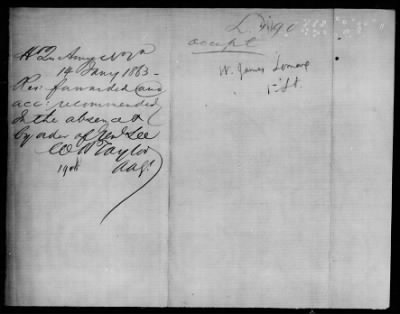 Hd Qrs Army N. Va
14 Jany 1863 -
Res: forwarded and
acc: recommended
In the absence &
by order of Genl Lee
W H Taylor
AAG
accept
W. James
1st Lt.